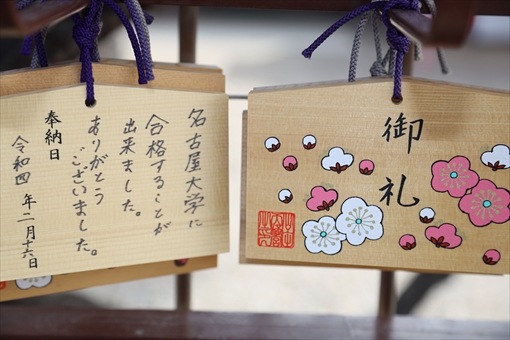 名古屋大学に
合格することが
出来ました。
ありがとう
ございました。
奉納日
令和四年二月十六日
御礼